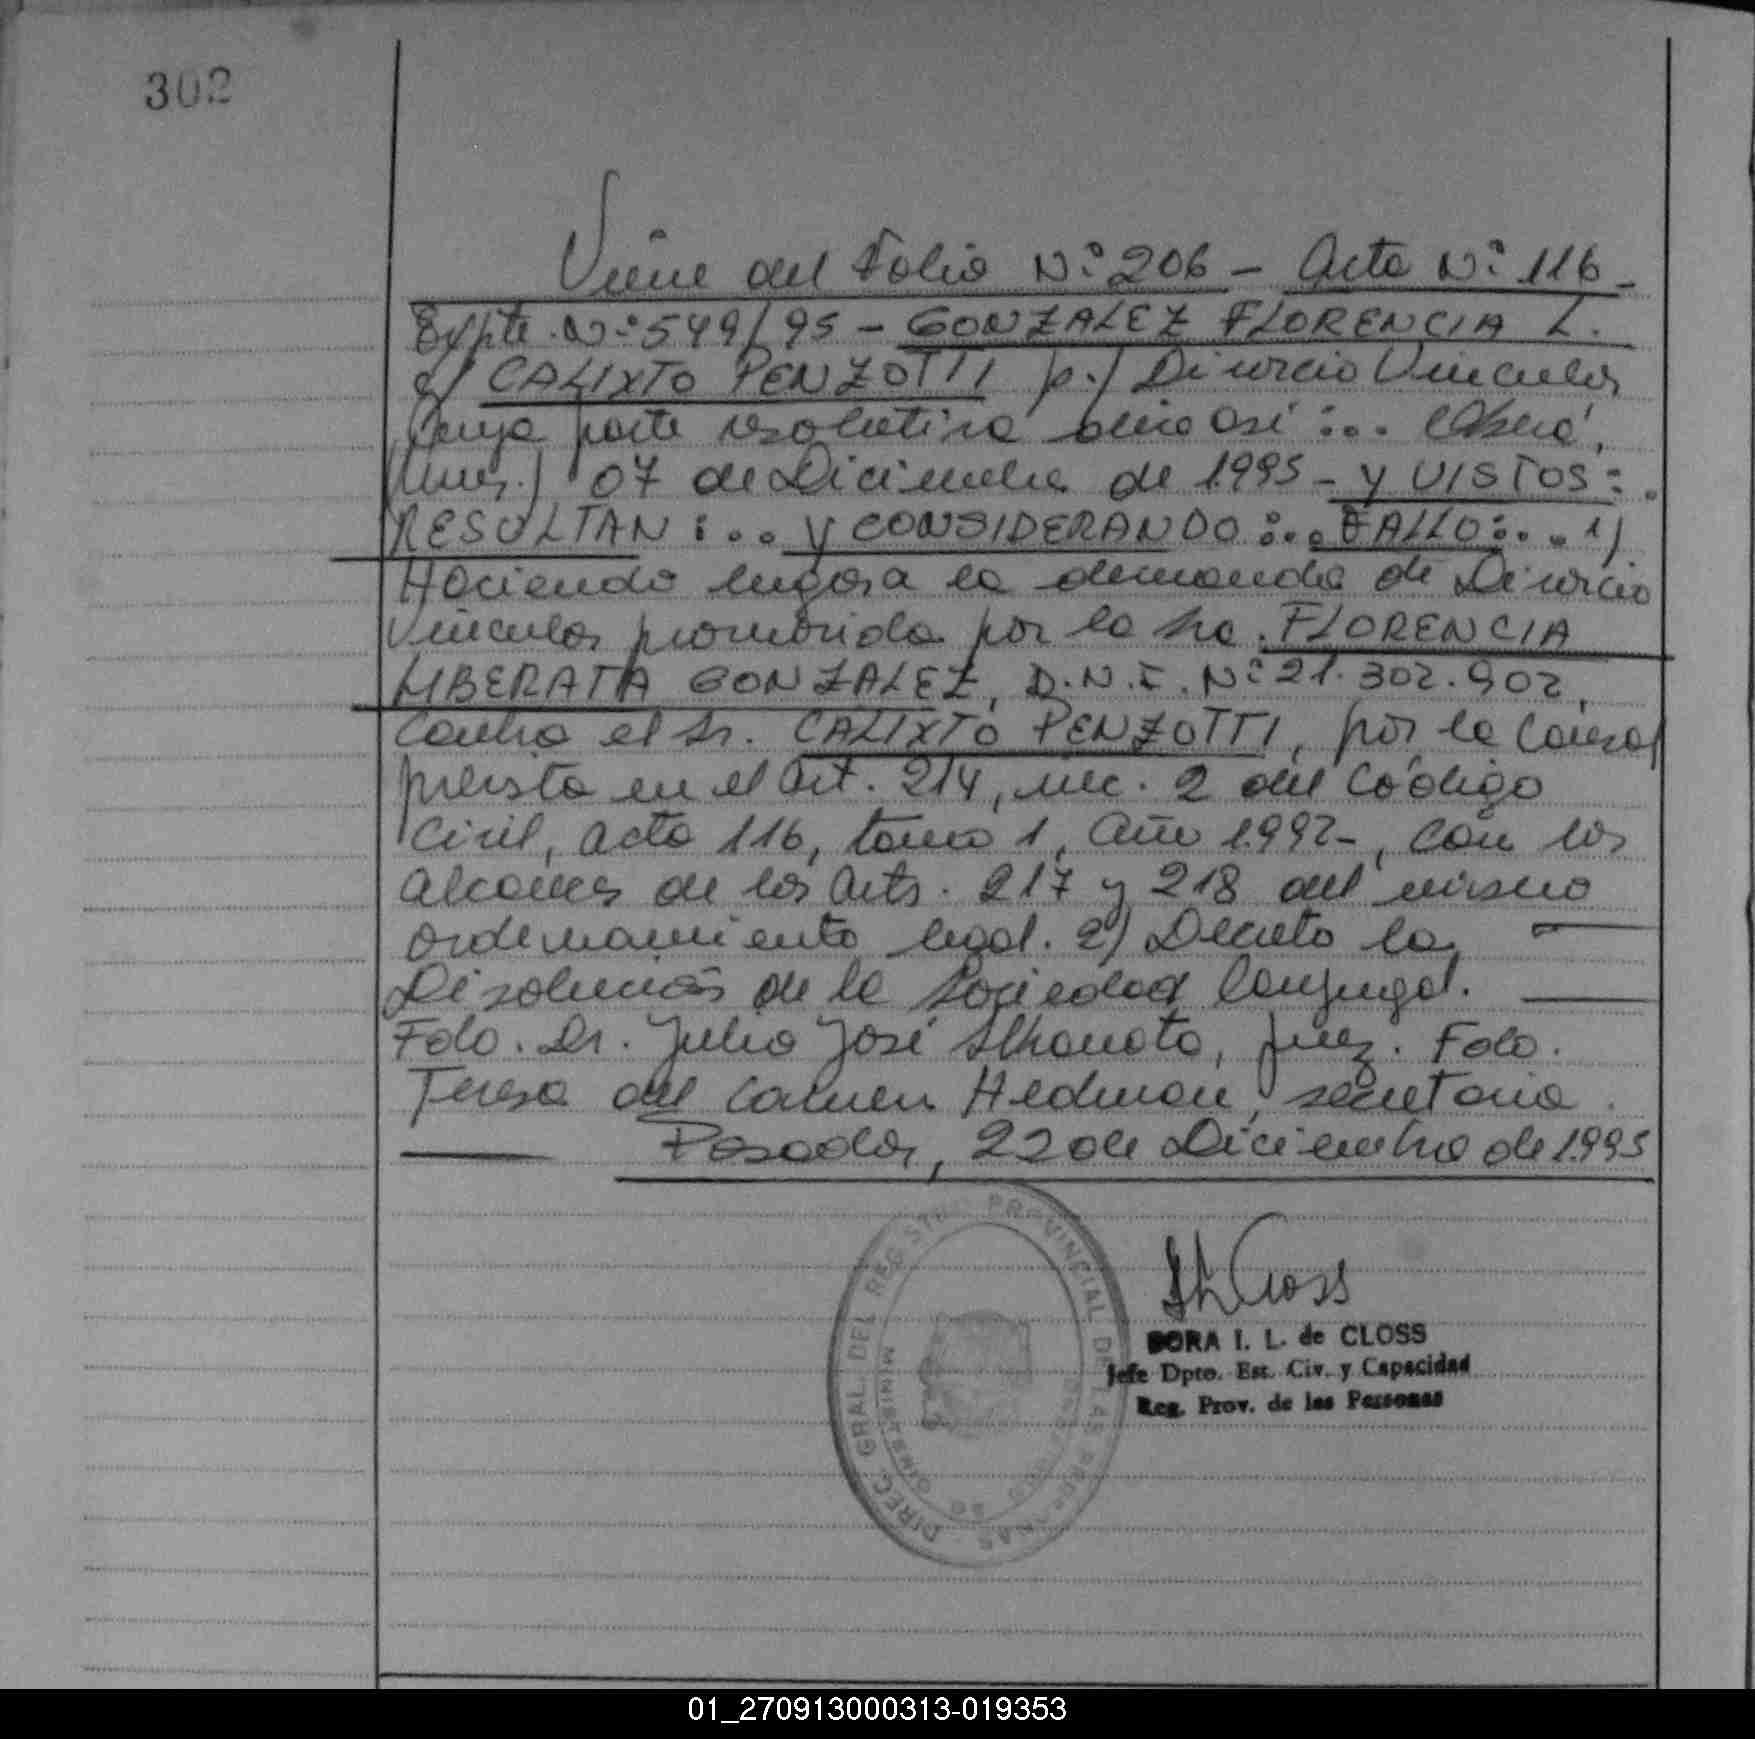 302
Viene del Folio Nº 206 - Acta Nº 116 -
Expte. Nº 549/95 - GONZALEZ FLORENCIA L.
c/ CALIXTO PENZOTTI p./ Divorcio Vincular
Cuya parte resolutiva dice así:... Oberá,
(Mnes.) 07 de Diciembre de 1995 - Y VISTOS:.
RESULTAN:... y CONSIDERANDO:... FALLO:... 1)
Haciendo lugar a la demanda de Divorcio
Vincular promovida por la Sra. FLORENCIA
LIBERATA GONZALEZ, D.N.I. Nº 21.302.902,
contra el Sr. CALIXTO PENZOTTI, por la causal
prevista en el art. 214, inc. 2 del Código
Civil, acta 116, tomo 1, Año 1992-, con los
alcances de los Arts. 217 y 218 del mismo
ordenamiento legal. 2) Decreto la
Disolución de la Sociedad Conyugal.
Fdo. Dr. Julio José, Juez. Fdo.
Teresa del Carmen Hedman, secretaria.
Posadas, 22 de Diciembre de 1995
DIREC. GRAL. DEL REGISTRO PROVINCIAL DE LAS PERSONAS
MINISTERIO DE GOBIERNO
DORA I. L. de CLOSS
Jefe Dpto. Est. Civ. y Capacidad
Reg. Prov. de las Personas
01_270913000313-019353